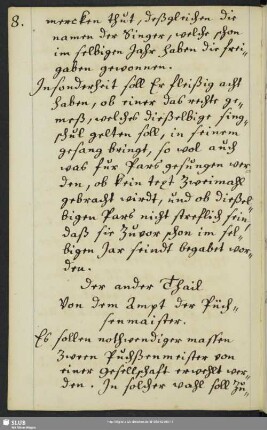 8.
mercken thut, deßgleichen die
namen der Singer, welche schon
im selbigen Jahr haben die frei-
gaben gewonnen.
Insonderheit soll Er fleißig acht
haben, ob einer das rechte ge-
meß, welches dießelbige sing-
schůl gelten soll, in seinem
gesang bringt, so wol auch
was fur Pars gesungen wer
den, ob kein text Zweimahl
gebracht wirdt, und ob dießel-
bigen Pars nicht streflich sein,
daß sie Zuvor schon im sel-
bigen Jar seindt begabet wor-
den.
Der ander Thail
Von dem Ampt der Püch-
senmaister.
Es sollen nothwendiger massen
Zween Puchßenmeister von
einer Gesellschafft erwehlt wer-
den. In solcher wahl soll Zu-
SLUB